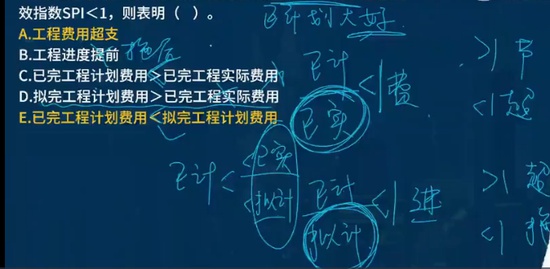 效指数SPI<1，则表明（ ）。
A.工程费用超支
B.工程进度提前
C.已完工程计划费用>已完工程实际费用
D.拟完工程计划费用>已完工程实际费用
E.已完工程计划费用<拟完工程计划费用
已计划大好
拖后
已计
已实
<1 费
>1 节
<1 超
已计 < 已实
< 拟计
已计
拟计
<1 进
>1 超
<1 拖